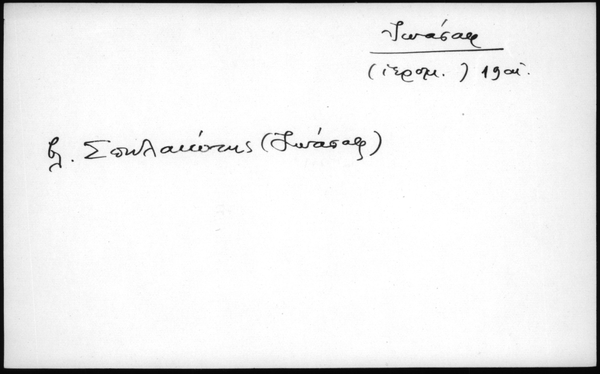 Ἰωάσαφ
(ἱερομ.) 19ου αἰ.
βλ. Σπηλαιώτης (Ἰωάσαφ)